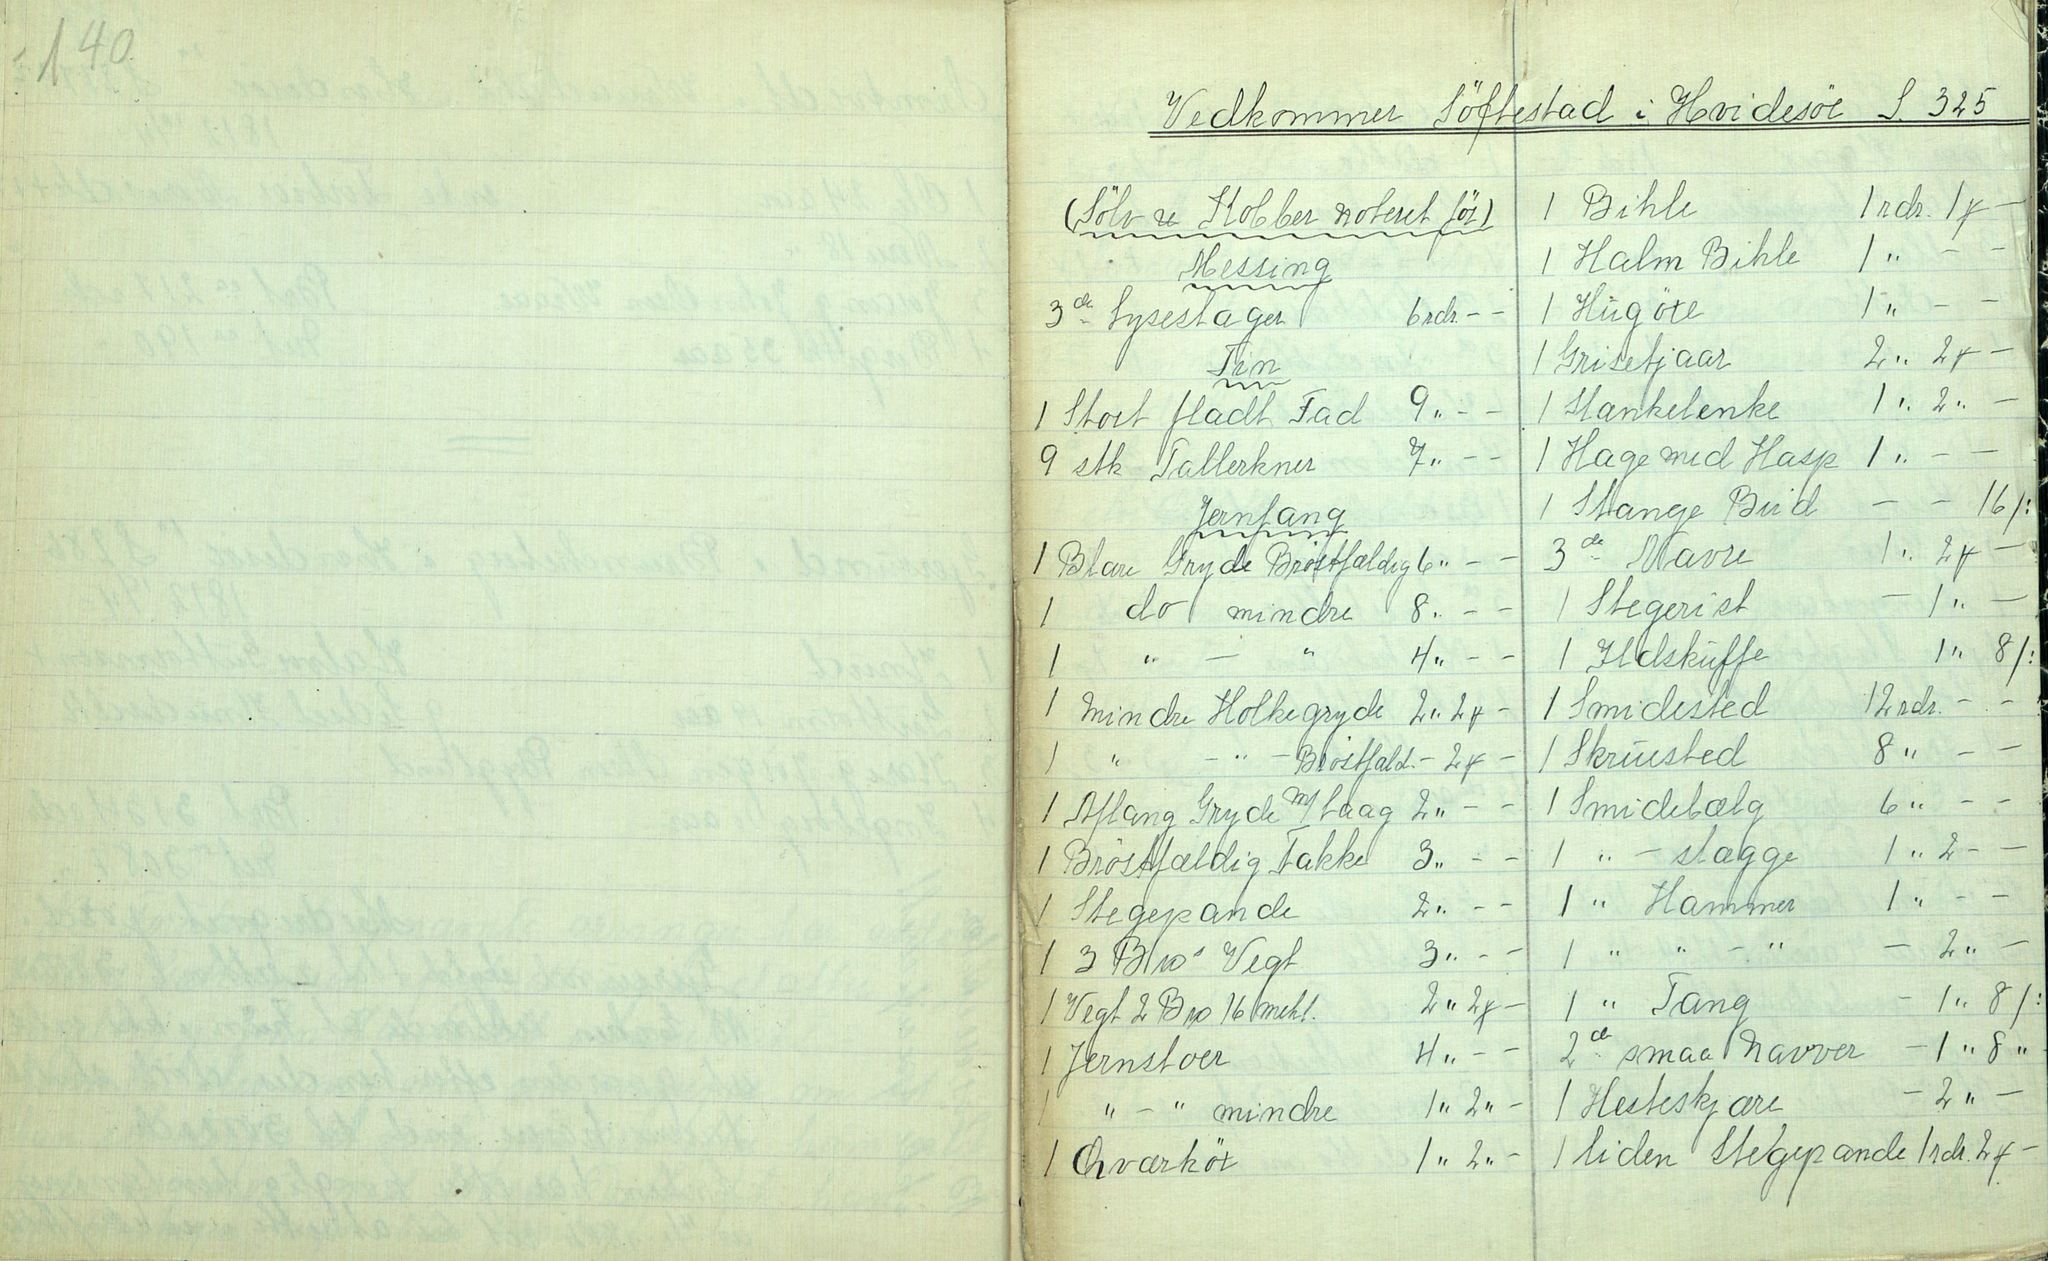 140.
Vedkommer Söftestad i Hvidesöe S. 325
(Sölv & Kobber noteret för)
Messing
3de Lysestager 6 rdr. - -
Tin
1 Stort fladt Fad 9 " - -
9 stk Tallerkner 7 " - -
Jernfang
1 Blare Gryde Bröstfældig 6 " - -
1 do mindre 8 " - -
1 " - " 4 " - -
1 mindre Holkegryde 2 " 2 ƒ -
1 " - " - Bröstfæld. - 2 ƒ -
1 Aflang Gryde m/ Laag 2 " - -
1 Bröstfældig Takke 3 " - -
1 Stegepande 2 " - -
1 3 B Vegt 3 " - -
1 Vegt 2 B 16 mkl. 2 " 2 ƒ -
1 Jernstoer 4 " - -
1 " - " mindre 1 " 2 " -
1 Qværköt 1 " 2 " -
1 Bihle 1 rdr. 1 ƒ -
1 Halm Bihle 1 " - -
1 Hugöxe 1 " - -
1 Grisetjaar 2 " 2 ƒ -
1 Hankelenke 1 " 2 " -
1 Hage med Hasp 1 " - -
1 Stange Bid - - 16 /:
3de Navre 1 " 2 ƒ -
1 Stegerist - 1 " -
1 Ildskuffe 1 " 8 /:
1 Smidested 12 rdr. - -
1 Skruested 8 " - -
1 Smidebælg 6 " - -
1 " - slægge 1 " 2 - -
1 " Hammer 1 " - -
1 " " - " - 2 " -
1 " Tang - 1 " 8 /:
2de smaa Navver - 1 " 8 "
1 Hesteskjære - 2 " -
1 liden Stegepande 1 rdr. 2 ƒ -